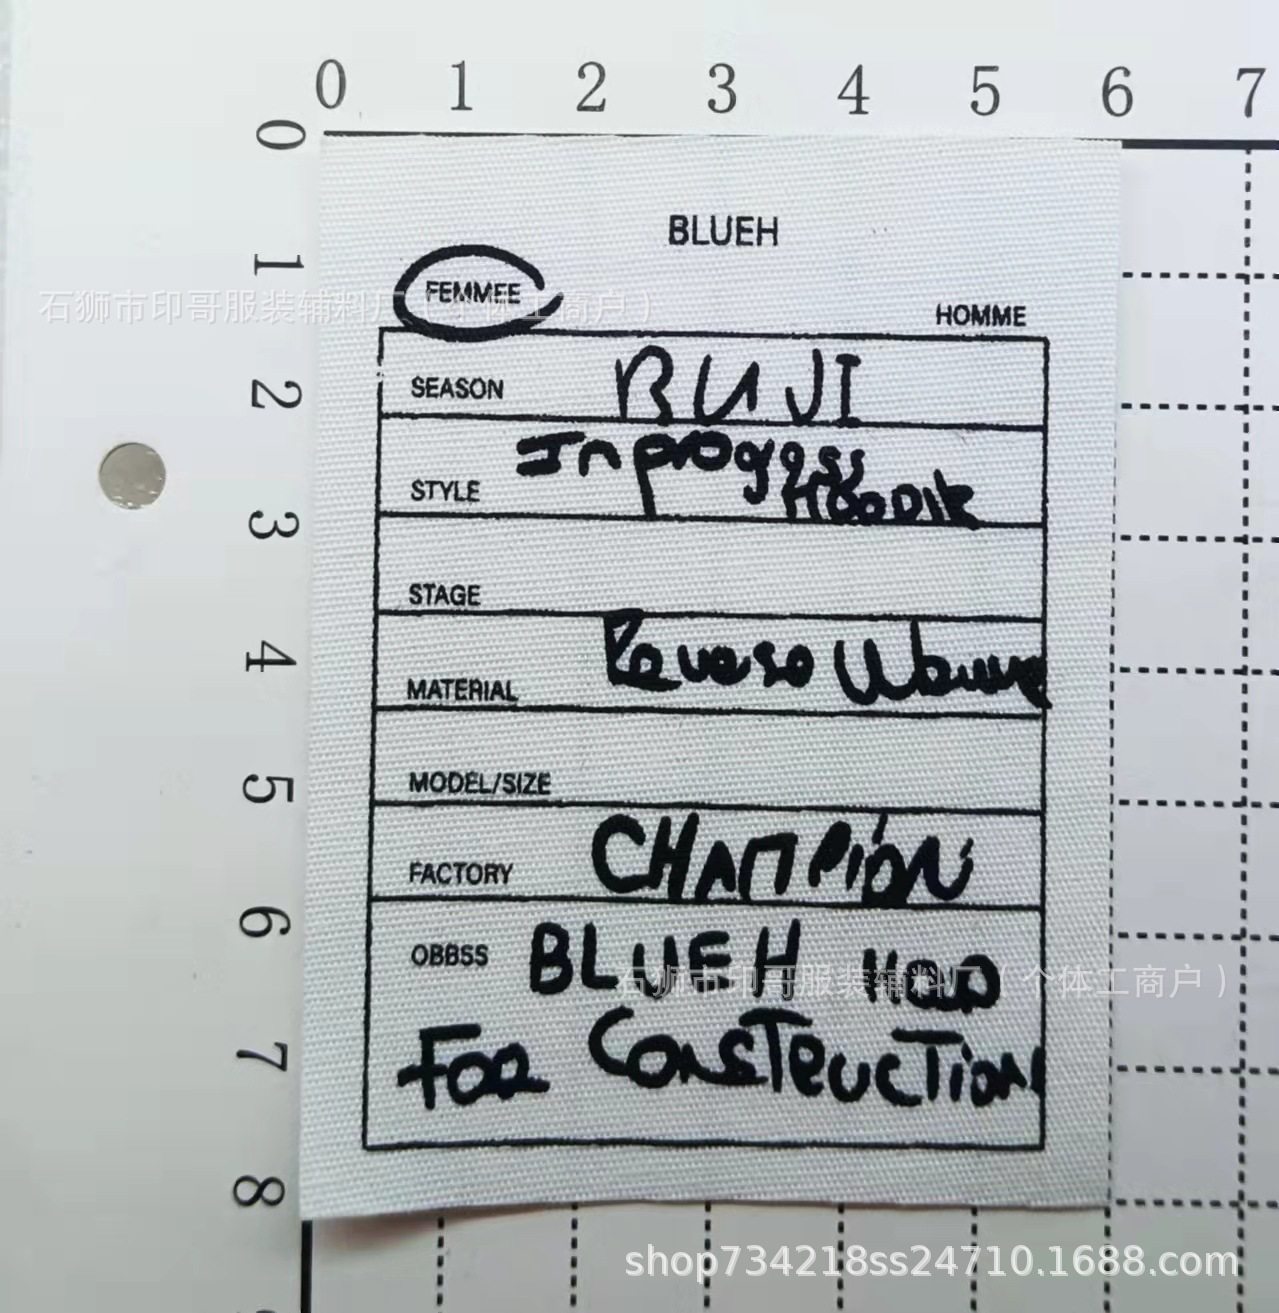 0 1 2 3 4 5 6 7
0
BLUEH
1
FEMMEE
石狮市印哥服装辅料厂（个体工商户）
HOMME
2
SEASON BUJI
STYLE Inprogess
HOODIE
3
STAGE
4
MATERIAL
5
MODEL/SIZE
FACTORY CHAMPION
6
OBBSS BLUEH HOOD
石狮市印哥服装辅料厂（个体工商户）
7
FOR CONSTRUCTION
8
shop734218ss24710.1688.com